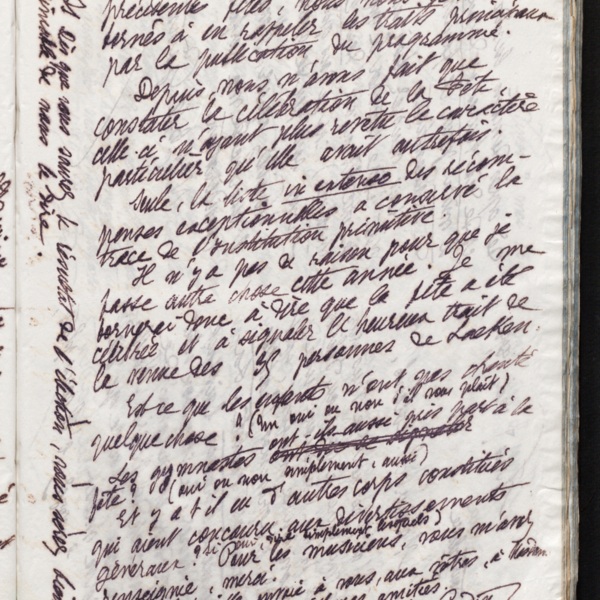 précédentes fêtes, nous nous
bornés à en rappeler les traits principaux
par la publication du programme.
Depuis, nous n'avons fait que
constater la célébration de la fête
celle-ci n'ayant plus revêtu le caractère
particulier qu'elle avait autrefois.
Seule, la liste in extenso des récom-
penses exceptionnelles a conservé la
trace de l'institution primitive.
Il n'y a pas de raison pour que je
fasse autre chose cette année. Je me
bornerai donc à dire que la fête a été
célébrée et à signaler l'heureux trait de
la venue des 35 personnes de Laeken.
Est-ce que les enfants n'ont pas chanté
quelque chose ? (un oui ou non s'il vous plaît)
Les gymnastes ont-ils aussi pris part à la
fête ? (oui ou non simplement, aussi)
Et y a-t-il eu d'autres corps constitués
qui aient concouru aux divertissements
généraux ? Si oui simplement
Pour les musiciens, vous m'avez
renseigné, merci.
à vous, aux nôtres, à
amitiés
Dès que vous saurez le résultat de l'élection, vous serez bien
aimable de nous le dire.